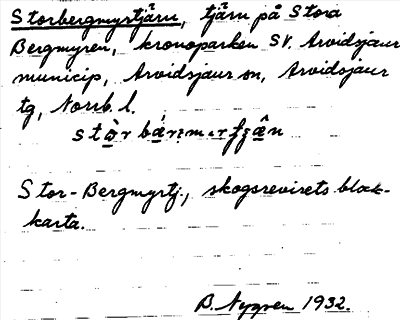 Storbergmyrtjärn, tjärn på Stora
Bergmyren, kronoparken SV. Arvidsjaur
municip, Arvidsjaur sn, Arvidsjaur
tg, Norrb. l.
Stor-Bergmyrtj., skogsrevirets block-
karta.
B. Nygren 1932.